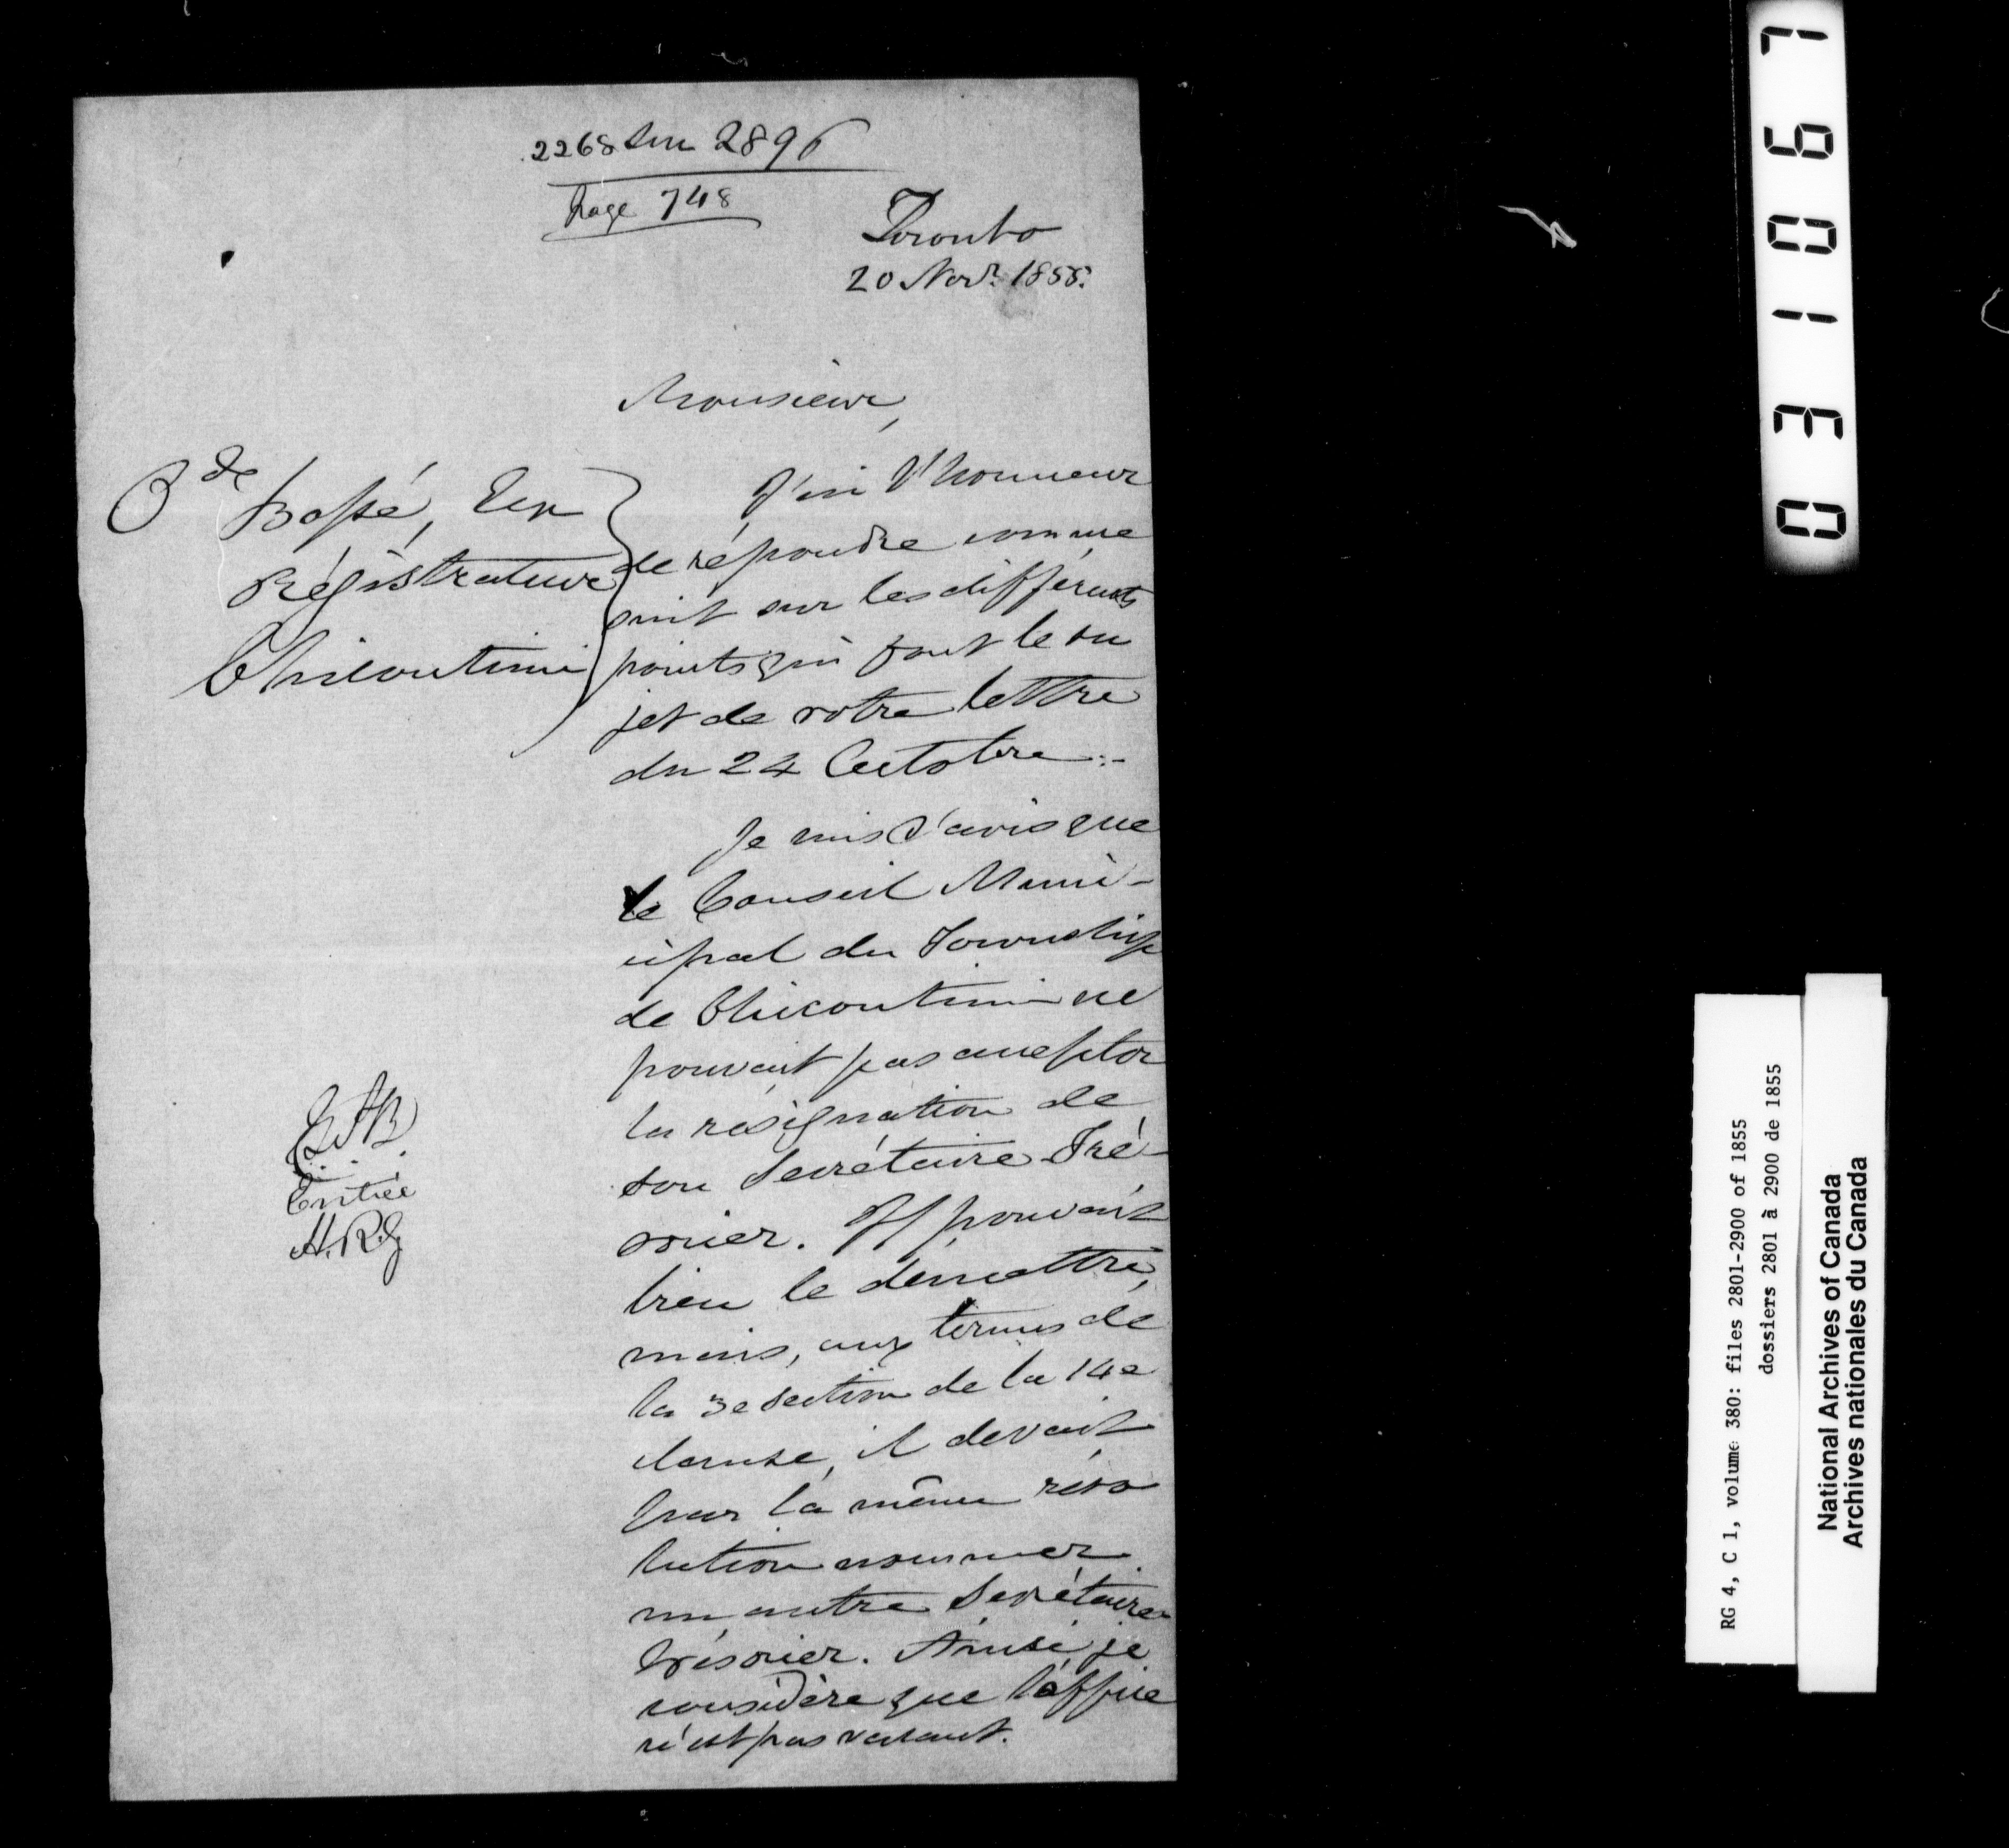 2268 sur 2896
Page 748
Toronto
20 Novr. 1855.
Monsieur,
Ode Bossé, Ecr
Régistrateur
Chicoutimi
J'ai l'honneur
de répondre comme
suit sur les différents
points qui font le su
jet de votre lettre
du 24 Octobre :-
Je suis d'avis que
le Conseil Muni-
cipal du Township
de Chicoutimi ne
pouvait pas accepter
la résignation de
son Secrétaire Tré-
sorier. Il pouvait
bien le démettre,
mais, aux termes de
la 3e section de la 14e
clause, il devait
par la même réso
lution nommer
un autre Secrétaire
trésorier. Ainsi je
considère que l'office
n'est pas vacant.
Entrée
H.R.G
0 3 1 0 6 7
RG 4, C 1, volume 380: files 2801-2900 of 1855
dossiers 2801 à 2900 de 1855
National Archives of Canada
Archives nationales du Canada